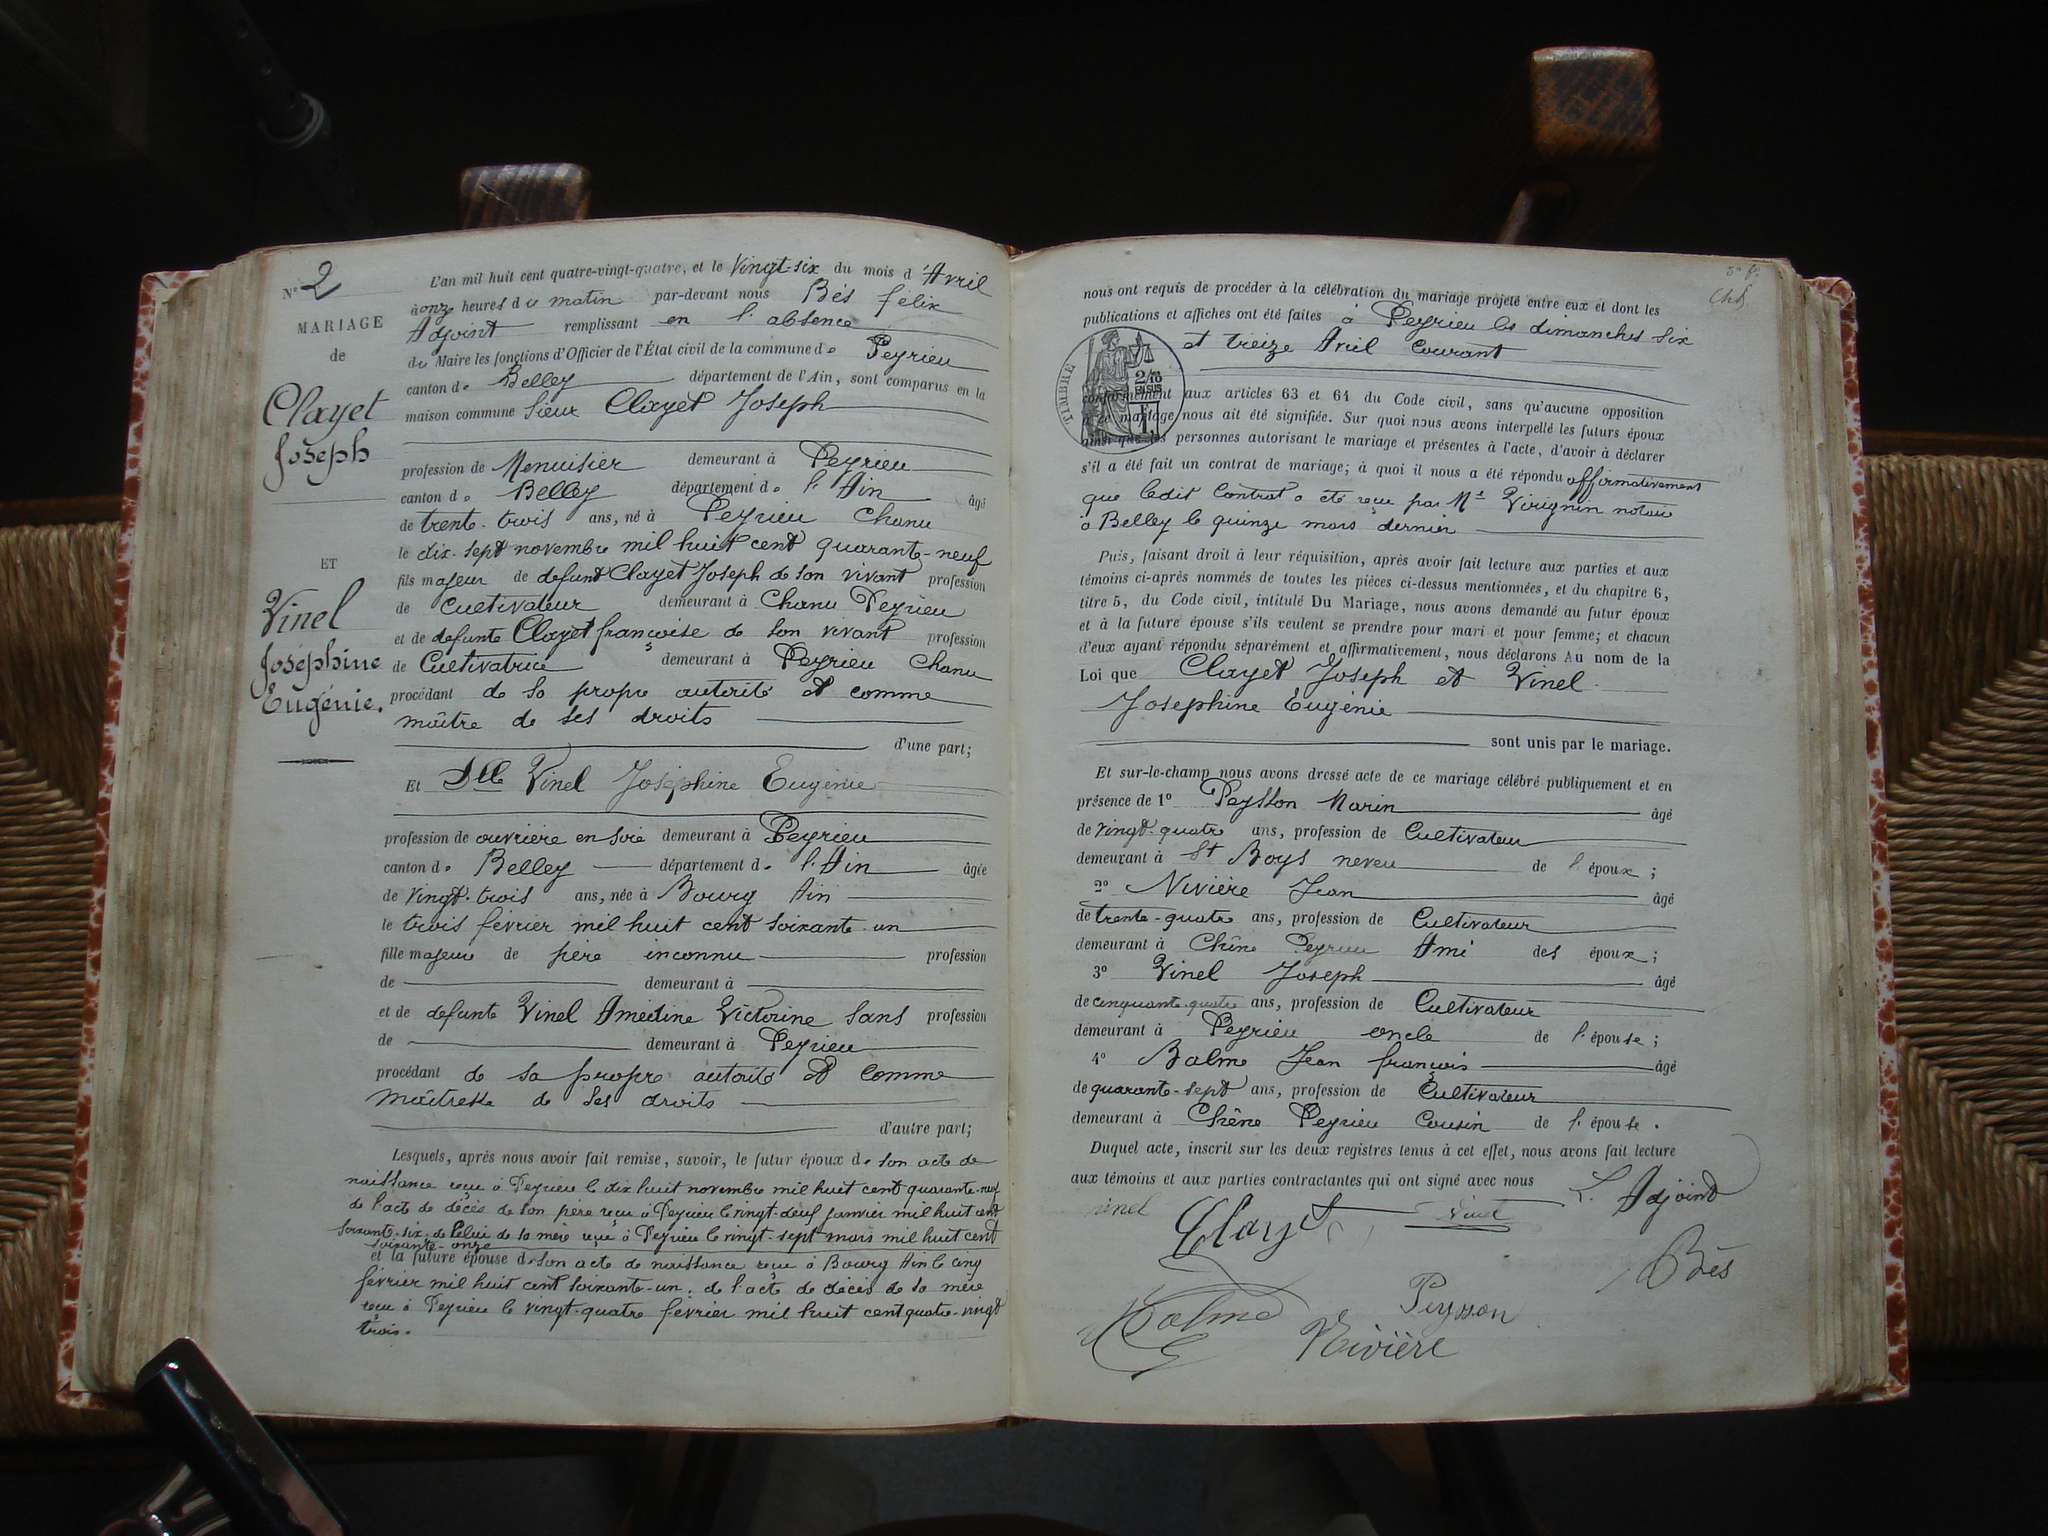 N° 2
MARIAGE
de
Clayet
Joseph
ET
Vinel
Joséphine
Eugénie.
L'an mil huit cent quatre-vingt-quatre, et le Vingt-six du mois d'Avril
à onze heures du matin par-devant nous Bés félix
Adjoint remplissant en l'absence
du Maire les fonctions d'Officier de l'État civil de la commune de Peyrieu
canton de Belley département de l'Ain, sont comparus en la
maison commune Sieur Clayet Joseph
profession de Menuisier demeurant à Peyrieu
canton de Belley département de l'Ain âgé
de trente-trois ans, né à Peyrieu Chanu
le dix-sept novembre mil huit cent quarante-neuf
fils majeur de defunt Clayet Joseph de son vivant profession
de Cultivateur demeurant à Chanu Peyrieu
et de defunte Clayet françoise de son vivant profession
de Cultivatrice demeurant à Peyrieu Chanu
procédant de sa propre autorité et comme
maître de ses droits
d'une part;
Et Dlle Vinel Joséphine Eugénie
profession de ouvrière en soie demeurant à Peyrieu
canton de Belley département de l'Ain âgée
de vingt-trois ans, née à Bourg Ain
le trois février mil huit cent soixante-un
fille majeure de père inconnu profession
de demeurant à
et de defunte Vinel Amédine Victorine Sans profession
de demeurant à Peyrieu
procédant de sa propre autorité et comme
maîtresse de ses droits
d'autre part;
Lesquels, après nous avoir fait remise, savoir, le futur époux de son acte de
naissance reçu à Peyrieu le dix huit novembre mil huit cent quarante-neuf
de l'acte de décès de son père reçu à Peyrieu le vingt-deuf janvier mil huit cent
soixante-six, de celui de sa mère reçu à Peyrieu le vingt-sept mars mil huit cent
soixante-onze
et la future épouse de son acte de naissance reçu à Bourg Ain le cinq
février mil huit cent soixante-un, de l'acte de décès de sa mère
reçu à Peyrieu le vingt-quatre février mil huit cent quatre-vingt
trois.
nous ont requis de procéder à la célébration du mariage projeté entre eux et dont les
publications et affiches ont été faites à Peyrieu les dimanches six
et treize Avril Courant
TIMBRE
2/10
EN SUS
conformément aux articles 63 et 64 du Code civil, sans qu'aucune opposition
à ce mariage nous ait été signifiée. Sur quoi nous avons interpellé les futurs époux
ainsi que les personnes autorisant le mariage et présentes à l'acte, d'avoir à déclarer
s'il a été fait un contrat de mariage; à quoi il nous a été répondu affirmativement
que ledit Contrat a été reçu par Me Virignin notaire
à Belley le quinze mars dernier
Puis, faisant droit à leur réquisition, après avoir fait lecture aux parties et aux
témoins ci-après nommés de toutes les pièces ci-dessus mentionnées, et du chapitre 6,
titre 5, du Code civil, intitulé Du Mariage, nous avons demandé au futur époux
et à la future épouse s'ils veulent se prendre pour mari et pour femme; et chacun
d'eux ayant répondu séparément et affirmativement, nous déclarons Au nom de la
Loi que Clayet Joseph et Vinel
Joséphine Eugénie
sont unis par le mariage.
Et sur-le-champ nous avons dressé acte de ce mariage célébré publiquement et en
présence de 1° Peysson Marin âgé
de vingt-quatre ans, profession de Cultivateur
demeurant à St Boys neveu de l'époux;
2° Nivière Jean âgé
de trente-quatre ans, profession de Cultivateur
demeurant à Chêne Peyrieu Ami des époux;
3° Vinel Joseph âgé
de cinquante-quatre ans, profession de Cultivateur
demeurant à Peyrieu oncle de l'épouse;
4° Balme Jean françois âgé
de quarante-sept ans, profession de Cultivateur
demeurant à Chêne Peyrieu Cousin de l'épouse.
Duquel acte, inscrit sur les deux registres tenus à cet effet, nous avons fait lecture
aux témoins et aux parties contractantes qui ont signé avec nous
vinel Clayet Vinel L'Adjoint
Bés
Balme Peysson
Nivière